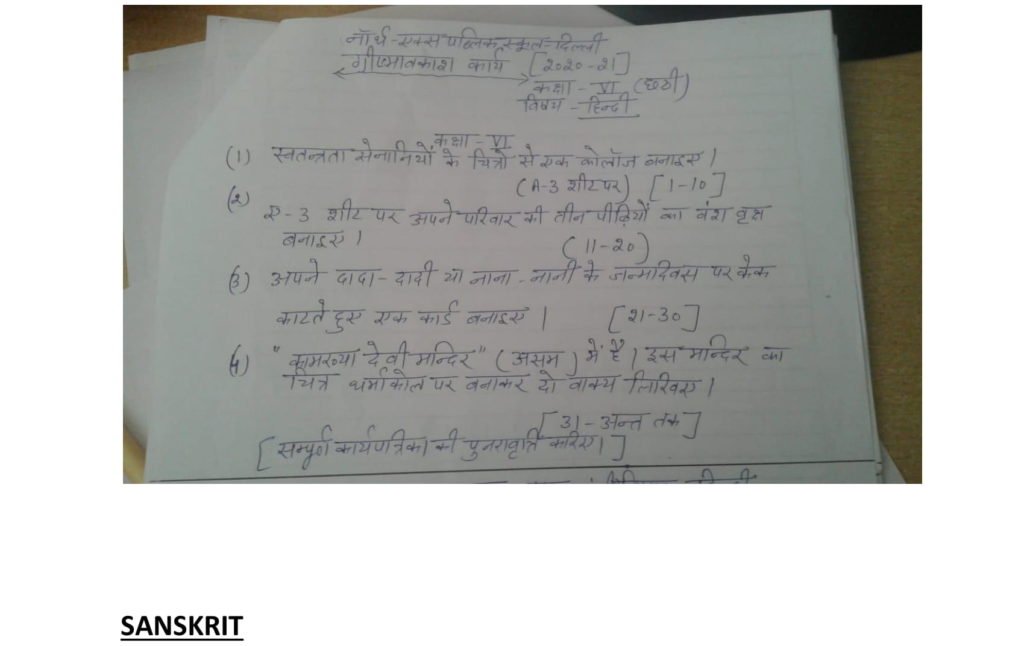 नॉर्थ-एक्स पब्लिक स्कूल-दिल्ली
ग्रीष्मावकाश कार्य [2020-21]
कक्षा - VI (छठी)
विषय - हिन्दी
कक्षा - VI
(1) स्वतन्त्रता सेनानियों के चित्रों से एक कोलॉज बनाइए।
(A-3 शीट पर) [1-10]
(2) ए-3 शीट पर अपने परिवार की तीन पीढ़ियों का वंश वृक्ष
बनाइए।
(11-20)
(3) अपने दादा-दादी या नाना-नानी के जन्मदिवस पर केक
काटते हुए एक कार्ड बनाइए। [21-30]
(4) "कामख्या देवी मन्दिर" (असम) में है। इस मन्दिर का
चित्र थर्माकोल पर बनाकर दो वाक्य लिखिए।
[31-अन्त तक]
[सम्पूर्ण कार्यपत्रिका की पुनरावृत्ति करिए।]
SANSKRIT